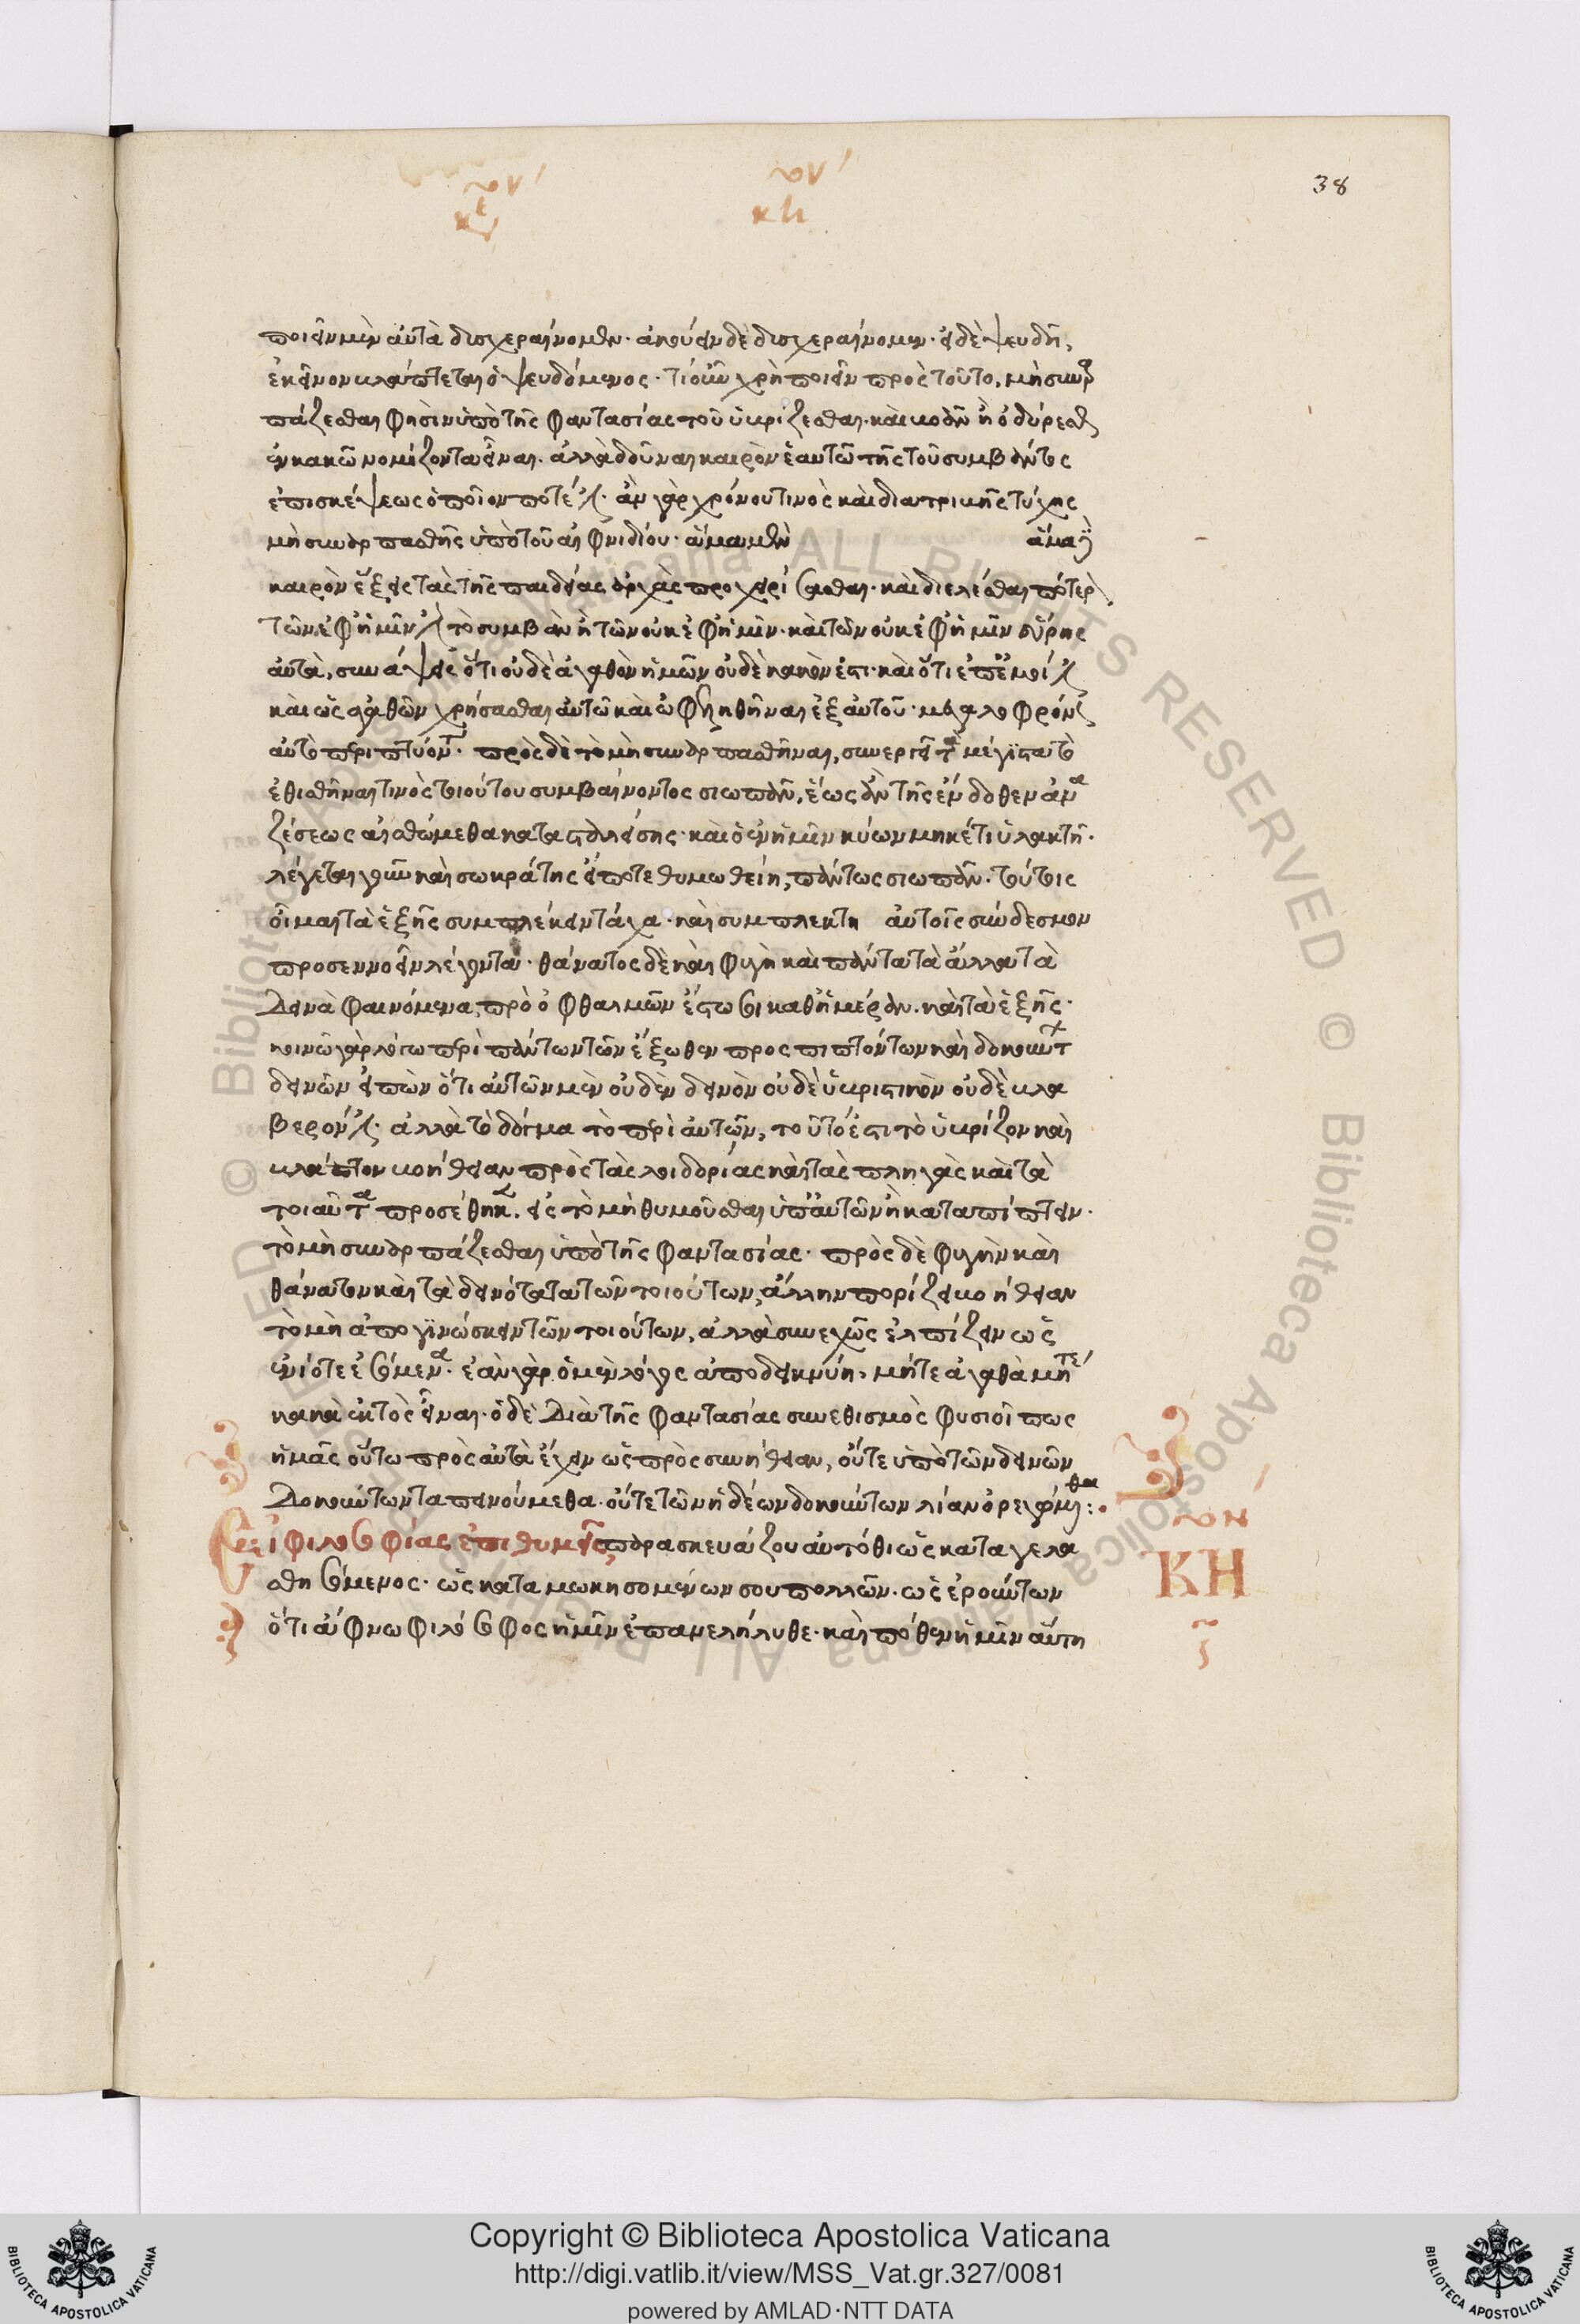 38
ποιεῖν μὲν αὐτὰ δυσχεραίνομεν· ἀκούειν δὲ δυσχεραίνομεν· εἰ δὲ ψευδῆ,
ἐκεῖνον βλάπτεται ὁ ψευδόμενος· τί οὖν χρὴ ποιεῖν πρὸς τοῦτο, μὴ συναρ
πάζεσθαι φησὶν ὑπὸ τῆς φαντασίας τοῦ ὑβρίζεσθαι· καὶ βοᾶν ἢ ὀδύρεσθαι
ἐν κακῶ νομίζοντα εἶναι· ἀλλὰ δοῦναι καιρὸν ἑαυτῶ τῆς τοῦ συμβάντος
ἐπισκέψεως ὁποῖον ποτέ ἐστι· ἂν γὰρ χρόνου τινὸς καὶ διατριβῆς τύχης
μὴ συναρπασθῆς ὑπὸ τοῦ αἰφνιδίου· ἅμα μὲν ἅμα δὲ
καιρὸν ἕξεις τὰς τῆς παιδείας ἀρχὰς προχειρίσασθαι· καὶ διελέσθαι πότερον
τῶν ἐφ' ἡμῖν ἐστι τὸ συμβὰν ἢ τῶν οὐκ ἐφ' ἡμῖν· καὶ τῶν οὐκ ἐφ' ἡμῖν εὕρης
αὐτὰ, συνάψεις ὅτι οὐδὲ ἀγαθὸν ἡμῶν οὐδὲ κακὸν ἐστι· καὶ ὅτι ἐπ' ἐμοί ἐστι
καὶ ὡς ἀγαθῶν χρήσασθαι αὐτῶ καὶ ὠφεληθῆναι ἐξ αὐτοῦ· μεγαλοφρόνως
αὐτὸ περιπτύοντα· πρὸς δὲ τὸ μὴ συναρπασθῆναι, συνεργεῖ τὰ μέγιστα τὸ
ἐθισθῆναι τινὸς τοιούτου συμβαίνοντος σιωπᾶν, ἕως ἂν τῆς ἔνδοθεν ἀνα
ζέσεως αἰσθώμεθα κατασταλείσης· καὶ ὁ ἐν ἡμῖν κύων μηκέτι ὑλακτῆ·
λέγεται γοῦν καὶ σωκράτης εἴποτε θυμωθείη, πάντως σιωπᾶν· τούτοις
οἶμαι τὰ ἑξῆς συμπλέκειν τάχα· καὶ συμπλεκτικ αὐτοῖς σύνδεσμον
προσεννοεῖν λέγοντα· θάνατος δὲ καὶ φυγὴ καὶ πάντα τὰ ἄλλα τὰ
δεινὰ φαινόμενα, πρὸ ὀφθαλμῶν ἔστω σοι καθ' ἡμέραν· καὶ τὰ ἑξῆς·
κοινῶ γὰρ λόγω περὶ πάντων τῶν ἔξωθεν προσπιπτόντων καὶ δοκούντων
δεινῶν εἰπὼν ὅτι αὐτῶν μὲν οὐδὲν δεινὸν οὐδὲ ὑβριστικὸν οὐδὲ βλα
βερόν ἐστι· ἀλλὰ τὸ δόγμα τὸ περὶ αὐτῶν, τοῦτό ἐστι τὸ ὑβρίζον καὶ
βλάπτον βοήθειαν πρὸς τὰς λοιδορίας καὶ τὰς πληγὰς καὶ τὰ
τοιαῦτα προσέθηκεν· εἰς τὸ μὴ θυμοῦσθαι ὑπ' αὐτῶν ἢ καταπίπτειν·
τὸ μὴ συναρπάζεσθαι ὑπὸ τῆς φαντασίας· πρὸς δὲ φυγὴν καὶ
θάνατον καὶ τὰ δεινότατα τῶν τοιούτων, ἄλλην πορίζει βοήθειαν
τὸ μὴ ἀπογινώσκειν τῶν τοιούτων, ἀλλὰ συνεχῶς ἐλπίζειν ὡς
ἐνίοτε ἐσόμενα· ἐὰν γὰρ ὁ μὲν λόγος ἀποδεικνύη, μήτε ἀγαθὰ μήτε
κακὰ ἐκτὸς εἶναι· ὁ δὲ διὰ τῆς φαντασίας συνεθισμὸς φυσιοῖ πως
ἡμᾶς οὕτω πρὸς αὐτὰ ἔχειν ὡς πρὸς συνήθειαν, οὔτε ὑπὸ τῶν δεινῶν
δοκούντων ταπεινούμεθα· οὔτε τῶν ἡδέων δοκούντων λίαν ὀρεγόμεθα:·
Εἰ φιλοσοφίας ἐπιθυμεῖς, παρασκευάζου αὐτόθι ὡς καταγελα
σθησόμενος· ὡς καταμωκησομένων σου πολλῶν· ὡς ἐρούντων
ὅτι ἄφνω φιλόσοφος ἡμῖν ἐπανελήλυθε· καὶ πόθεν ἡμῖν αὕτη
ΚΗ
Copyright © Biblioteca Apostolica Vaticana
http://digi.vatlib.it/view/MSS_Vat.gr.327/0081
powered by AMLAD·NTT DATA